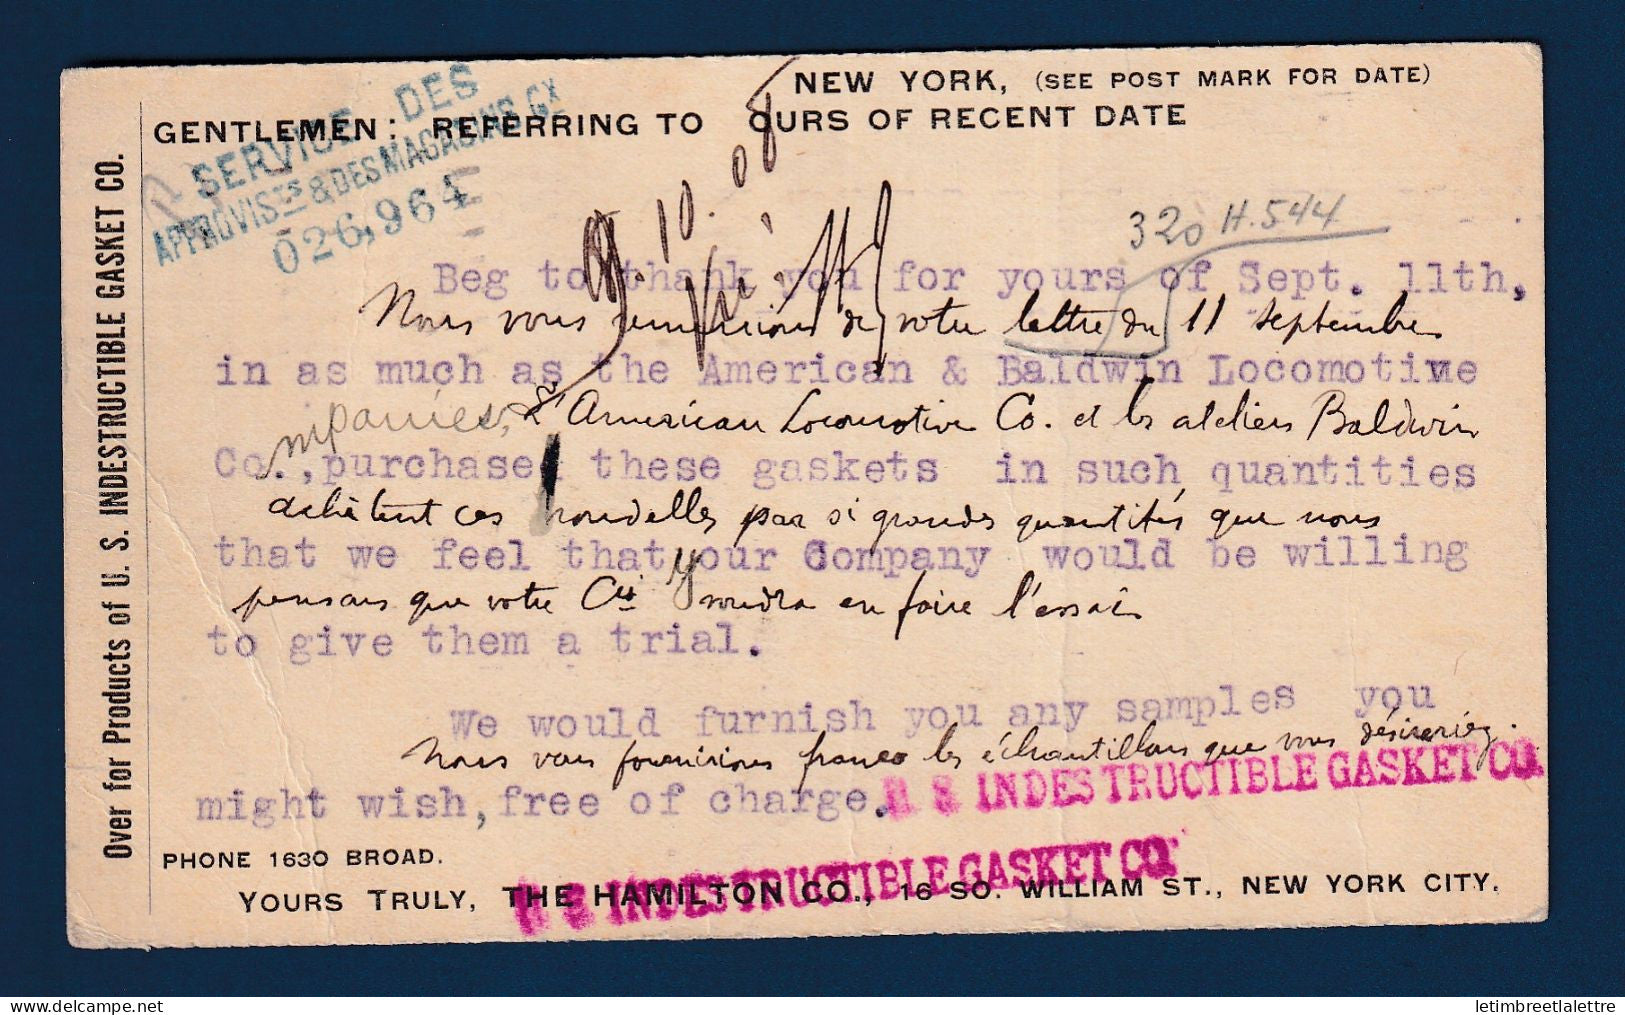 NEW YORK, (SEE POST MARK FOR DATE)
GENTLEMEN: REFERRING TO OURS OF RECENT DATE
SERVICE DES
APPROVISts & DES MAGASINS Gx
026,964
10.08
320 H.544
Over for Products of U. S. INDESTRUCTIBLE GASKET CO.
Beg to thank you for yours of Sept. 11th,
Nous vous remercions de votre lettre du 11 septembre
in as much as the American & Baldwin Locomotive
L'American Locomotive Co. et les ateliers Baldwin
Co., purchase these gaskets in such quantities
achètent ces rondelles par si grandes quantités que nous
that we feel that your Company would be willing
pensons que votre Cie voudra en faire l'essai
to give them a trial.
We would furnish you any samples you
Nous vous fournirions franco les échantillons que vous désireriez.
might wish, free of charge.
U S INDESTRUCTIBLE GASKET CO.
PHONE 1630 BROAD.
U S INDESTRUCTIBLE GASKET CO.
YOURS TRULY, THE HAMILTON CO., 16 SO. WILLIAM ST., NEW YORK CITY.
delcampe.net
letimbreetlalettre